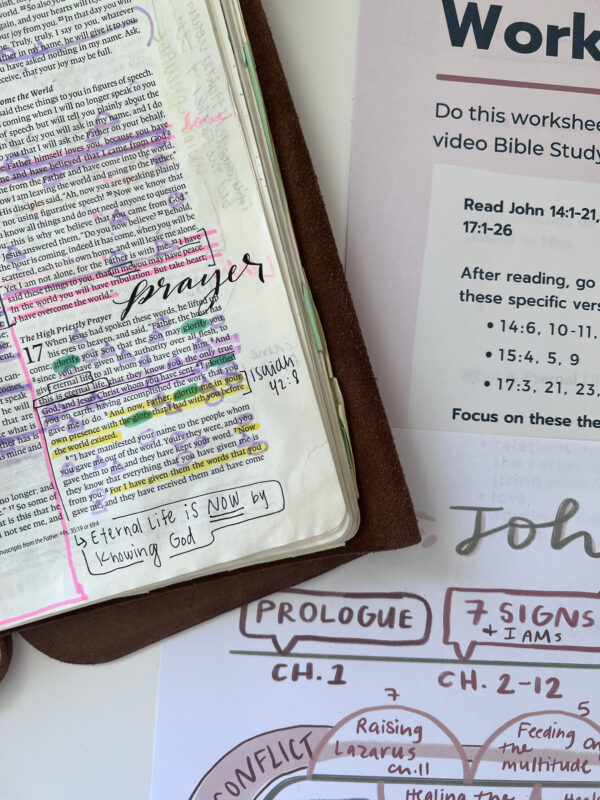 30 So also you
your joy from you. 23 In that day you will
Truly, truly, I say to you, whatever
Father in my name, he will give it to you.
you have asked nothing in my name. Ask,
receive, that your joy may be full.
come the World
said these things to you in figures of speech.
coming when I will no longer speak to you
of speech but will tell you plainly about the
In that day you will ask in my name, and I do
you that I will ask the Father on your behalf;
Father himself loves you, because you have
me and have believed that I came from God.
from the Father and have come into the world,
now I am leaving the world and going to the Father."
His disciples said, "Ah, now you are speaking plainly
not using figurative speech! 30 Now we know that
know all things and do not need anyone to question
this is why we believe that you came from God."
Jesus answered them, "Do you now believe? 32 Behold,
the hour is coming, indeed it has come, when you will
scattered, each to his own home, and will leave me alone.
Yet I am not alone, for the Father is with me. 33 I have
said these things to you, that in me you may have peace.
In the world you will have tribulation. But take heart;
I have overcome the world."
prayer
The High Priestly Prayer
17 When Jesus had spoken these words, he lifted up
his eyes to heaven, and said, "Father, the hour has
come; glorify your Son that the Son may glorify you,
2 since you have given him authority over all flesh, to
give eternal life to all whom you have given him. 3 And
this is eternal life, that they know you, the only true
God, and Jesus Christ whom you have sent. 4 I glorified
you on earth, having accomplished the work that you
gave me to do. 5 And now, Father, glorify me in your
own presence with the glory that I had with you before
the world existed.
Isaiah
42:8
6 "I have manifested your name to the people whom
you gave me out of the world. Yours they were, and you
gave them to me, and they have kept your word. 7 Now
they know that everything that you have given me is
from you. 8 For I have given them the words that you
gave me, and they have received them and have come
Eternal Life is NOW by
Knowing God
Work
Do this workshee
video Bible Study
Read John 14:1-21,
17:1-26
After reading, go
these specific vers
• 14:6, 10-11,
• 15:4, 5, 9
• 17:3, 21, 23,
Focus on these the
John
PROLOGUE
CH. 1
7 SIGNS
+ I AMs
CH. 2-12
CONFLICT
7
Raising
Lazarus
ch.11
5
Feeding
the
multitude
Healing the